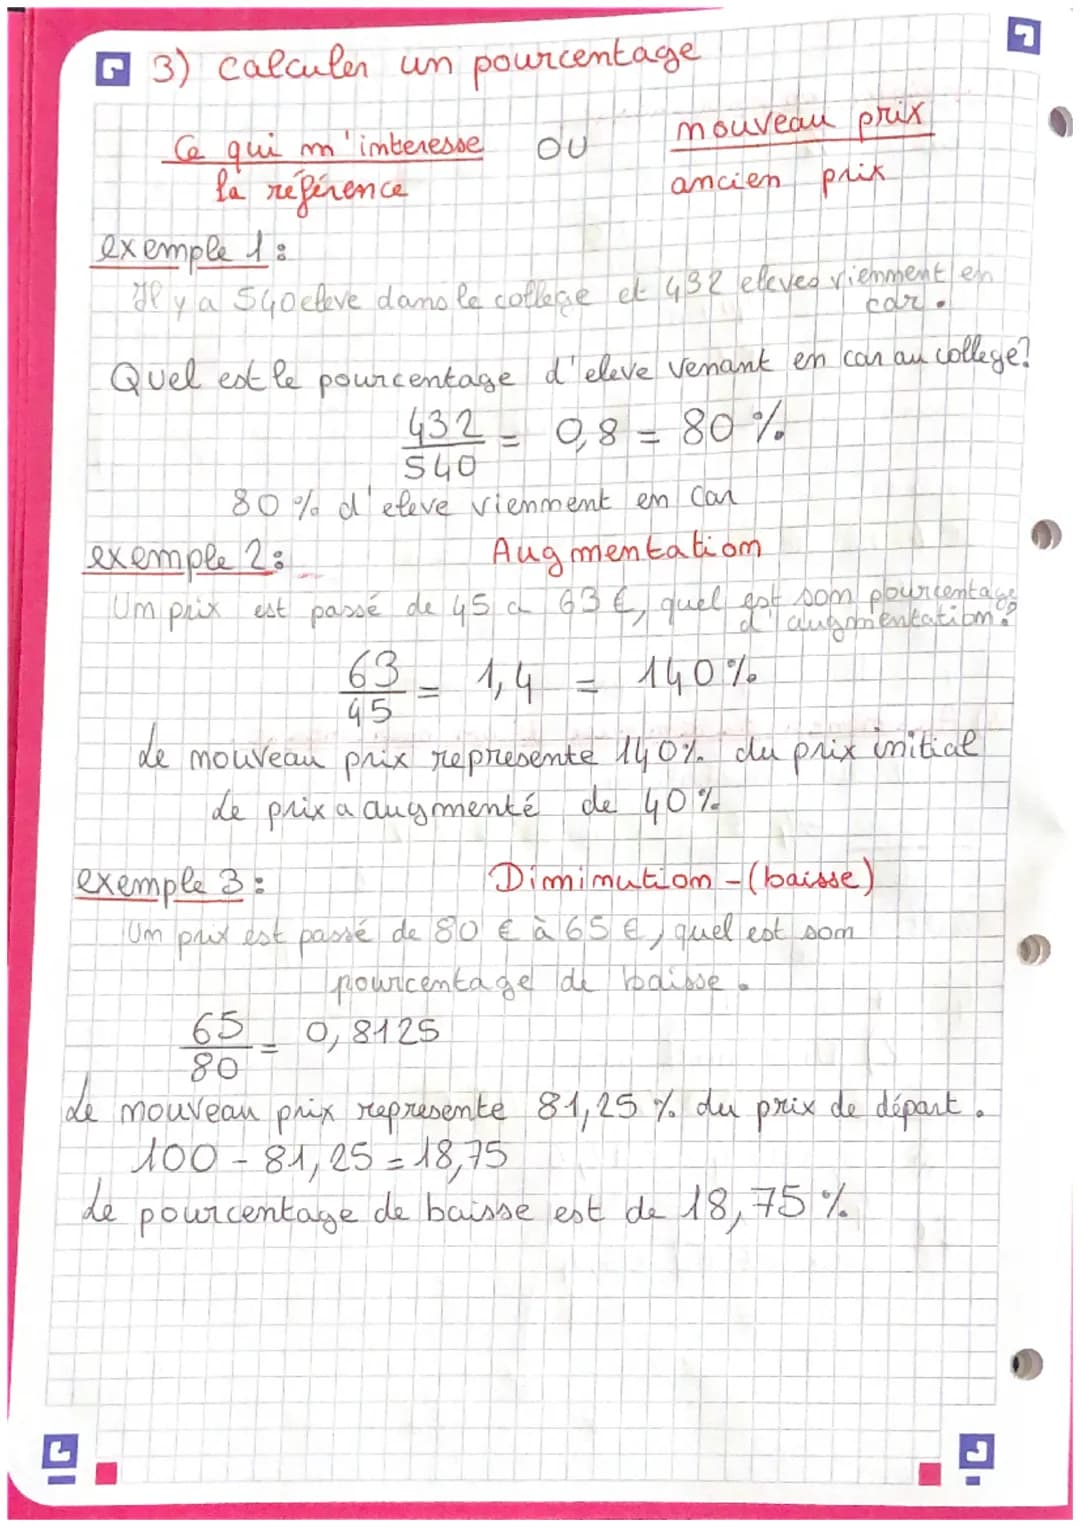 3) calculer un pourcentage
Ce qui m'interesse
la référence
OU
nouveau prix
ancien prix
exemple 1 :
Il y a 540 eleve dans le college et 432 eleves viennent en
car.
Quel est le pourcentage d'eleve venant en car au college ?
432
540
= 0,8 = 80 %
80 % d'eleve viennent en car
exemple 2 :
Augmentation
Un prix est passé de 45 a 63 €, quel est son pourcentage
d'augmentation ?
63
45
= 1,4 = 140 %
Le nouveau prix represente 140 % du prix initial
Le prix a augmenté de 40 %
exemple 3 :
Diminution - (baisse)
Un prix est passé de 80 € à 65 €, quel est son
pourcentage de baisse.
65
80
= 0,8125
Le nouveau prix represente 81,25 % du prix de départ.
100 - 81,25 = 18,75
Le pourcentage de baisse est de 18,75 %